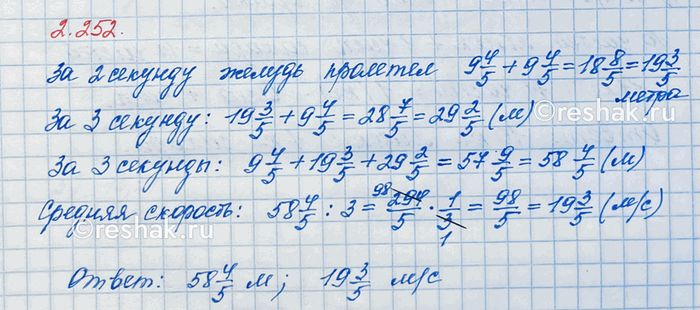 2.252.
За 2 секунду желудь пролетел 9 4/5 + 9 4/5 = 18 8/5 = 19 3/5
метра
За 3 секунду: 19 3/5 + 9 4/5 = 28 7/5 = 29 2/5 (м)
За 3 секунды: 9 4/5 + 19 3/5 + 29 2/5 = 57 9/5 = 58 4/5 (м)
Средняя скорость: 58 4/5 : 3 = 98 294/5 · 1/3 1 = 98/5 = 19 3/5 (м/с)
Ответ: 58 4/5 м; 19 3/5 м/с
©reshak.ru
©reshak.ru
©reshak.ru
©reshak.ru